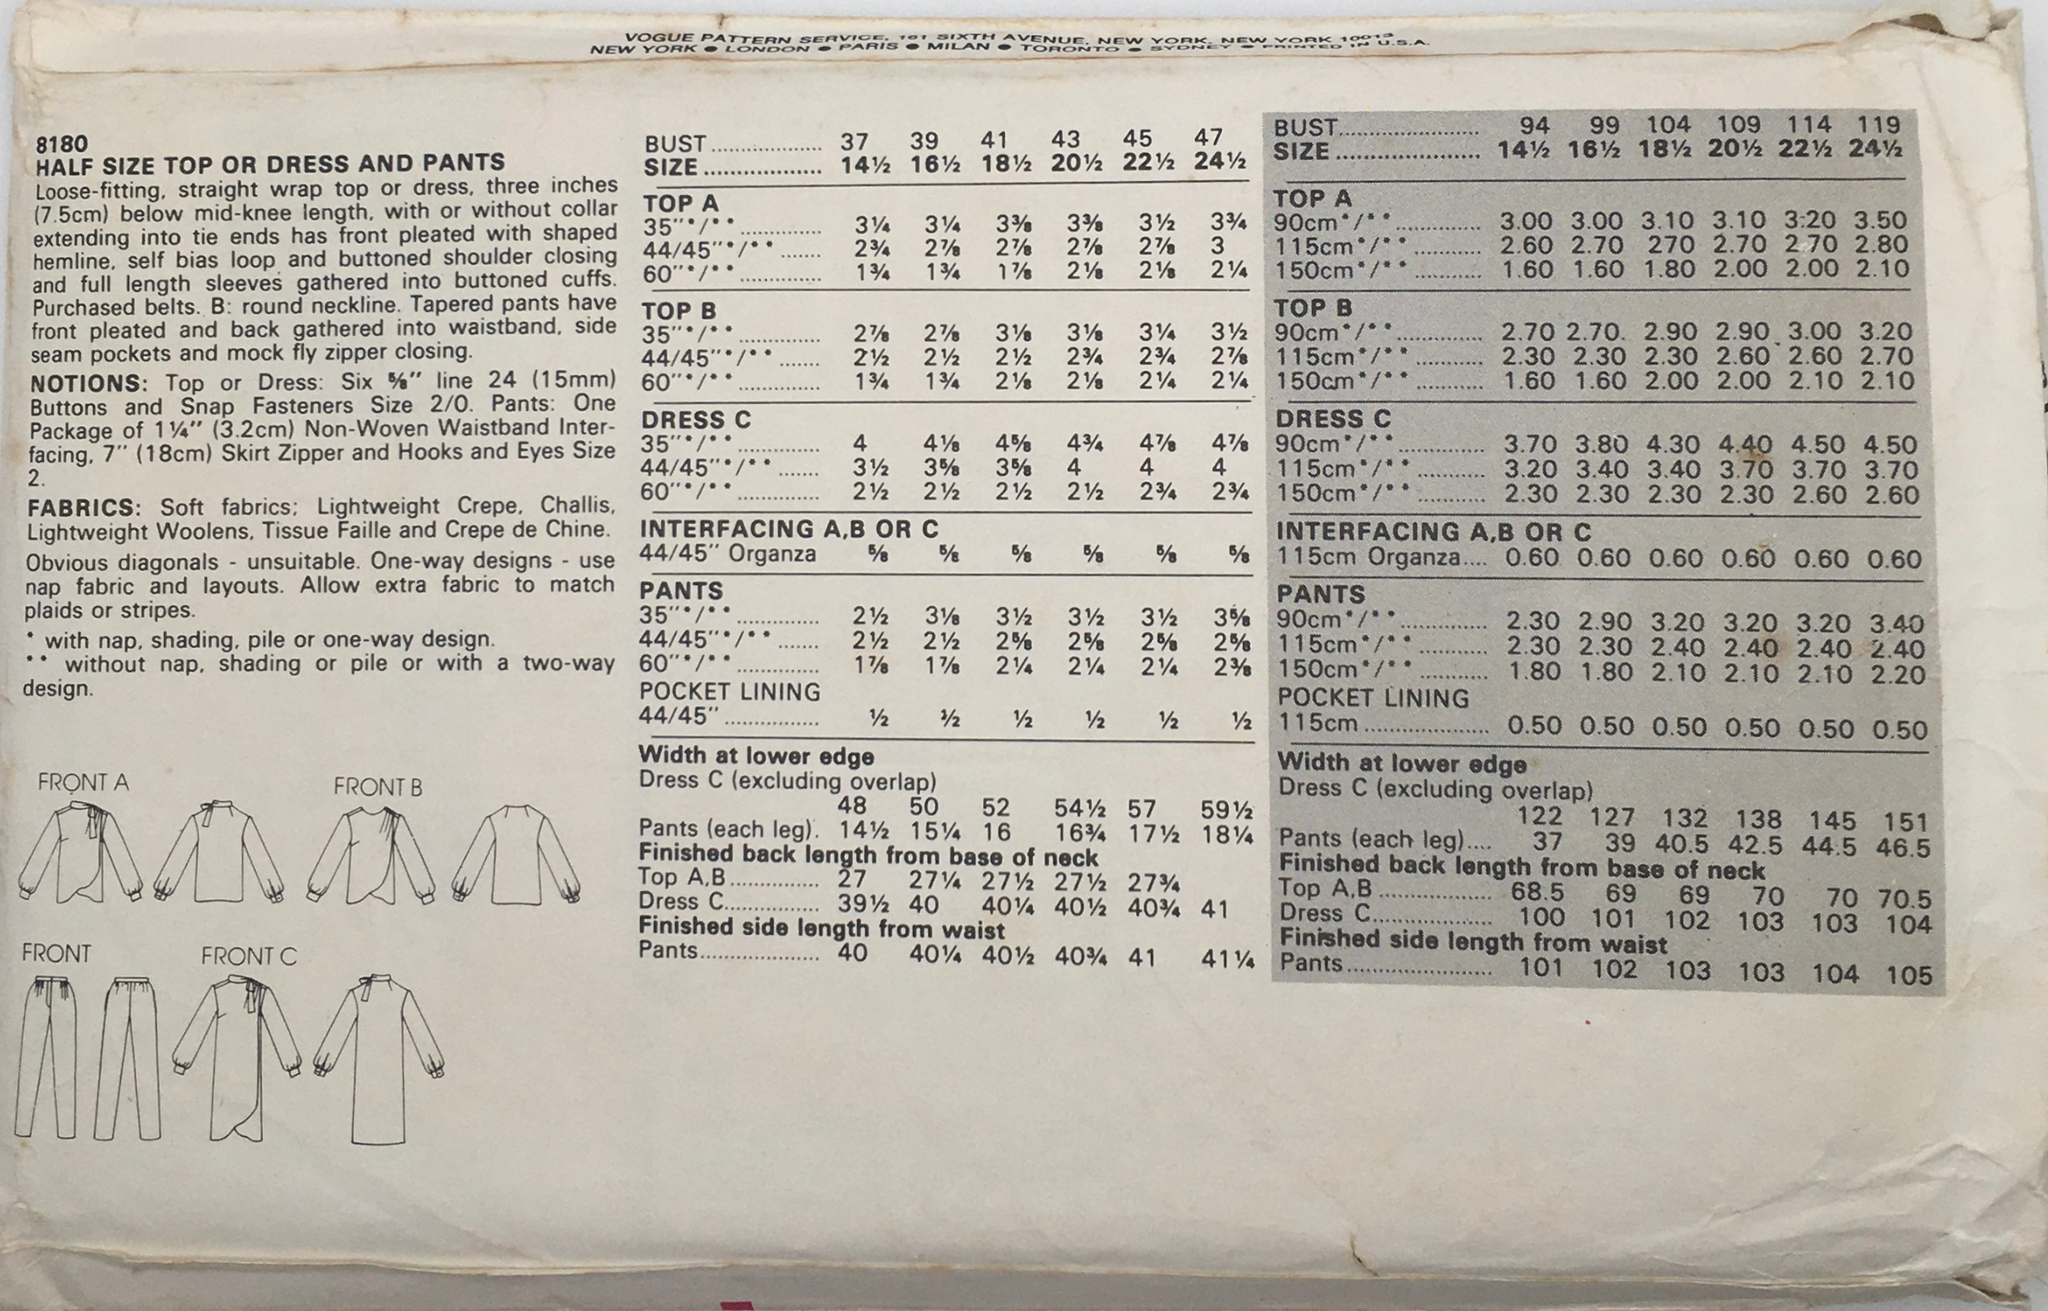 VOGUE PATTERN SERVICE, 161 SIXTH AVENUE, NEW YORK, NEW YORK 10013
NEW YORK ● LONDON ● PARIS ● MILAN ● TORONTO ● SYDNEY ● PRINTED IN U.S.A.
8180
HALF SIZE TOP OR DRESS AND PANTS
Loose-fitting, straight wrap top or dress, three inches
(7.5cm) below mid-knee length, with or without collar
extending into tie ends has front pleated with shaped
hemline, self bias loop and buttoned shoulder closing
and full length sleeves gathered into buttoned cuffs.
Purchased belts. B: round neckline. Tapered pants have
front pleated and back gathered into waistband, side
seam pockets and mock fly zipper closing.
NOTIONS: Top or Dress: Six ⅝" line 24 (15mm)
Buttons and Snap Fasteners Size 2/0. Pants: One
Package of 1¼" (3.2cm) Non-Woven Waistband Inter-
facing, 7" (18cm) Skirt Zipper and Hooks and Eyes Size
2.
FABRICS: Soft fabrics; Lightweight Crepe, Challis,
Lightweight Woolens, Tissue Faille and Crepe de Chine.
Obvious diagonals - unsuitable. One-way designs - use
nap fabric and layouts. Allow extra fabric to match
plaids or stripes.
* with nap, shading, pile or one-way design.
** without nap, shading or pile or with a two-way
design.
FRONT A FRONT B
FRONT FRONT C
BUST.................. 37 39 41 43 45 47
SIZE................... 14½ 16½ 18½ 20½ 22½ 24½
TOP A
35"*/**............. 3¼ 3¼ 3⅜ 3⅜ 3½ 3¾
44/45"*/**....... 2¾ 2⅞ 2⅞ 2⅞ 2⅞ 3
60"*/**............. 1¾ 1¾ 1⅞ 2⅛ 2⅛ 2¼
TOP B
35"*/**............. 2⅞ 2⅞ 3⅛ 3⅛ 3¼ 3½
44/45"*/**....... 2½ 2½ 2½ 2¾ 2¾ 2⅞
60"*/**............. 1¾ 1¾ 2⅛ 2⅛ 2¼ 2¼
DRESS C
35"*/**............. 4 4⅛ 4⅝ 4¾ 4⅞ 4⅞
44/45"*/**....... 3½ 3⅝ 3⅝ 4 4 4
60"*/**............. 2½ 2½ 2½ 2½ 2¾ 2¾
INTERFACING A,B OR C
44/45" Organza ⅝ ⅝ ⅝ ⅝ ⅝ ⅝
PANTS
35"*/**............. 2½ 3⅛ 3½ 3½ 3½ 3⅝
44/45"*/**....... 2½ 2½ 2⅝ 2⅝ 2⅝ 2⅝
60"*/**............. 1⅞ 1⅞ 2¼ 2¼ 2¼ 2⅜
POCKET LINING
44/45"............... ½ ½ ½ ½ ½ ½
Width at lower edge
Dress C (excluding overlap)
48 50 52 54½ 57 59½
Pants (each leg). 14½ 15¼ 16 16¾ 17½ 18¼
Finished back length from base of neck
Top A,B.............. 27 27¼ 27½ 27½ 27¾
Dress C............... 39½ 40 40¼ 40½ 40¾ 41
Finished side length from waist
Pants................... 40 40¼ 40½ 40¾ 41 41¼
BUST....................... 94 99 104 109 114 119
SIZE........................ 14½ 16½ 18½ 20½ 22½ 24½
TOP A
90cm*/**.............. 3.00 3.00 3.10 3.10 3.20 3.50
115cm*/**........... 2.60 2.70 270 2.70 2.70 2.80
150cm*/**........... 1.60 1.60 1.80 2.00 2.00 2.10
TOP B
90cm*/**.............. 2.70 2.70. 2.90 2.90 3.00 3.20
115cm*/**........... 2.30 2.30 2.30 2.60 2.60 2.70
150cm*/**........... 1.60 1.60 2.00 2.00 2.10 2.10
DRESS C
90cm*/**.............. 3.70 3.80 4.30 4.40 4.50 4.50
115cm*/**........... 3.20 3.40 3.40 3.70 3.70 3.70
150cm*/**........... 2.30 2.30 2.30 2.30 2.60 2.60
INTERFACING A,B OR C
115cm Organza.... 0.60 0.60 0.60 0.60 0.60 0.60
PANTS
90cm*/**.............. 2.30 2.90 3.20 3.20 3.20 3.40
115cm*/**........... 2.30 2.30 2.40 2.40 2.40 2.40
150cm*/**........... 1.80 1.80 2.10 2.10 2.10 2.20
POCKET LINING
115cm..................... 0.50 0.50 0.50 0.50 0.50 0.50
Width at lower edge
Dress C (excluding overlap)
122 127 132 138 145 151
Pants (each leg).... 37 39 40.5 42.5 44.5 46.5
Finished back length from base of neck
Top A,B................... 68.5 69 69 70 70 70.5
Dress C.................... 100 101 102 103 103 104
Finished side length from waist
Pants........................ 101 102 103 103 104 105